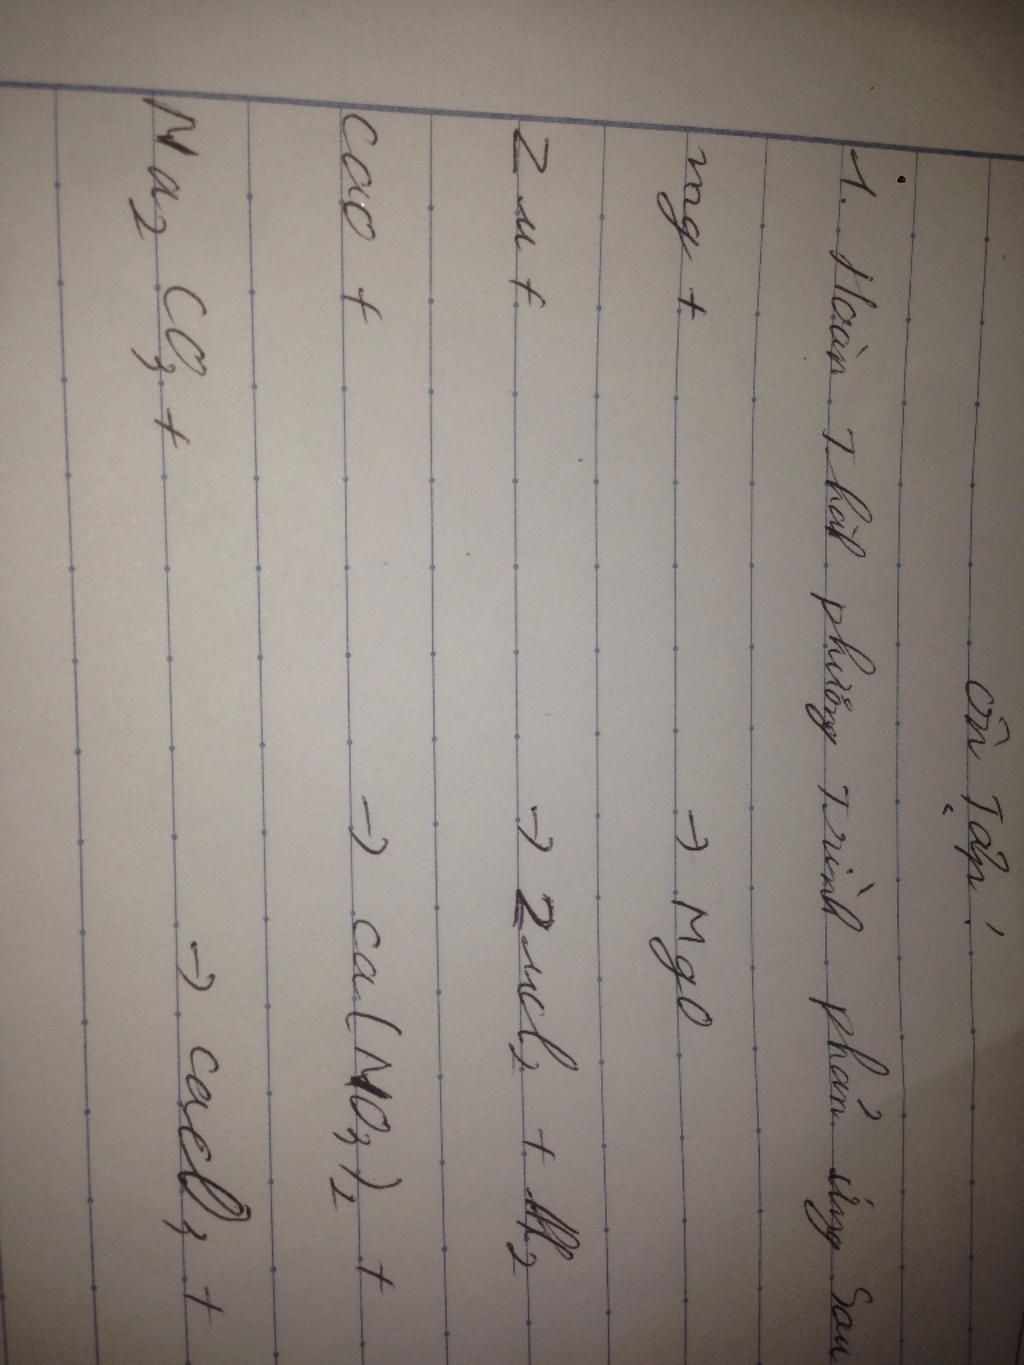 Ôn Tập
1. Hoàn Thành phương Trình phản ứng Sau
mg + → MgO
Zn + → ZnCl2 + H2
CaO + → Ca(NO3)2 +
Na2CO3 + → CaCO3 +